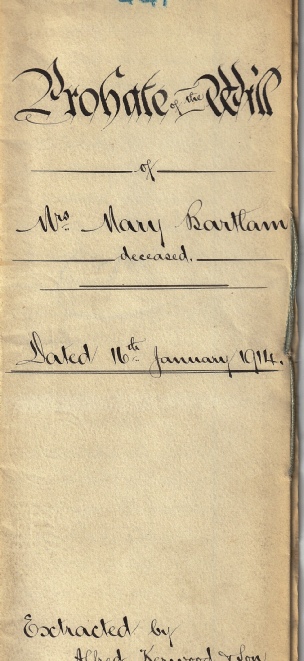 Probate of the Will
of
Mrs Mary Bartlam
deceased.
Dated 16th January 1914.
Extracted by
Alfred Kerwood & Son